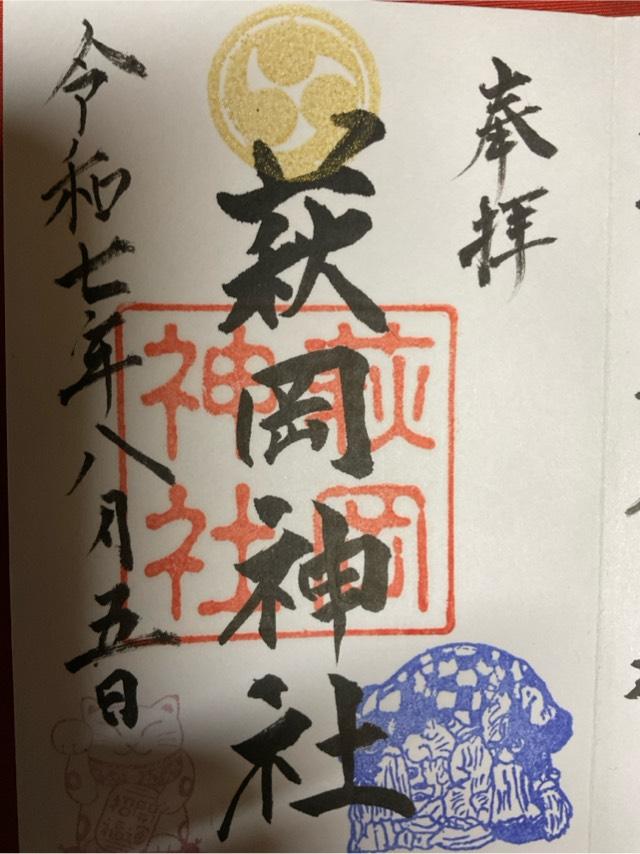 奉拝
萩岡神社
萩岡
神社
令和七年八月五日